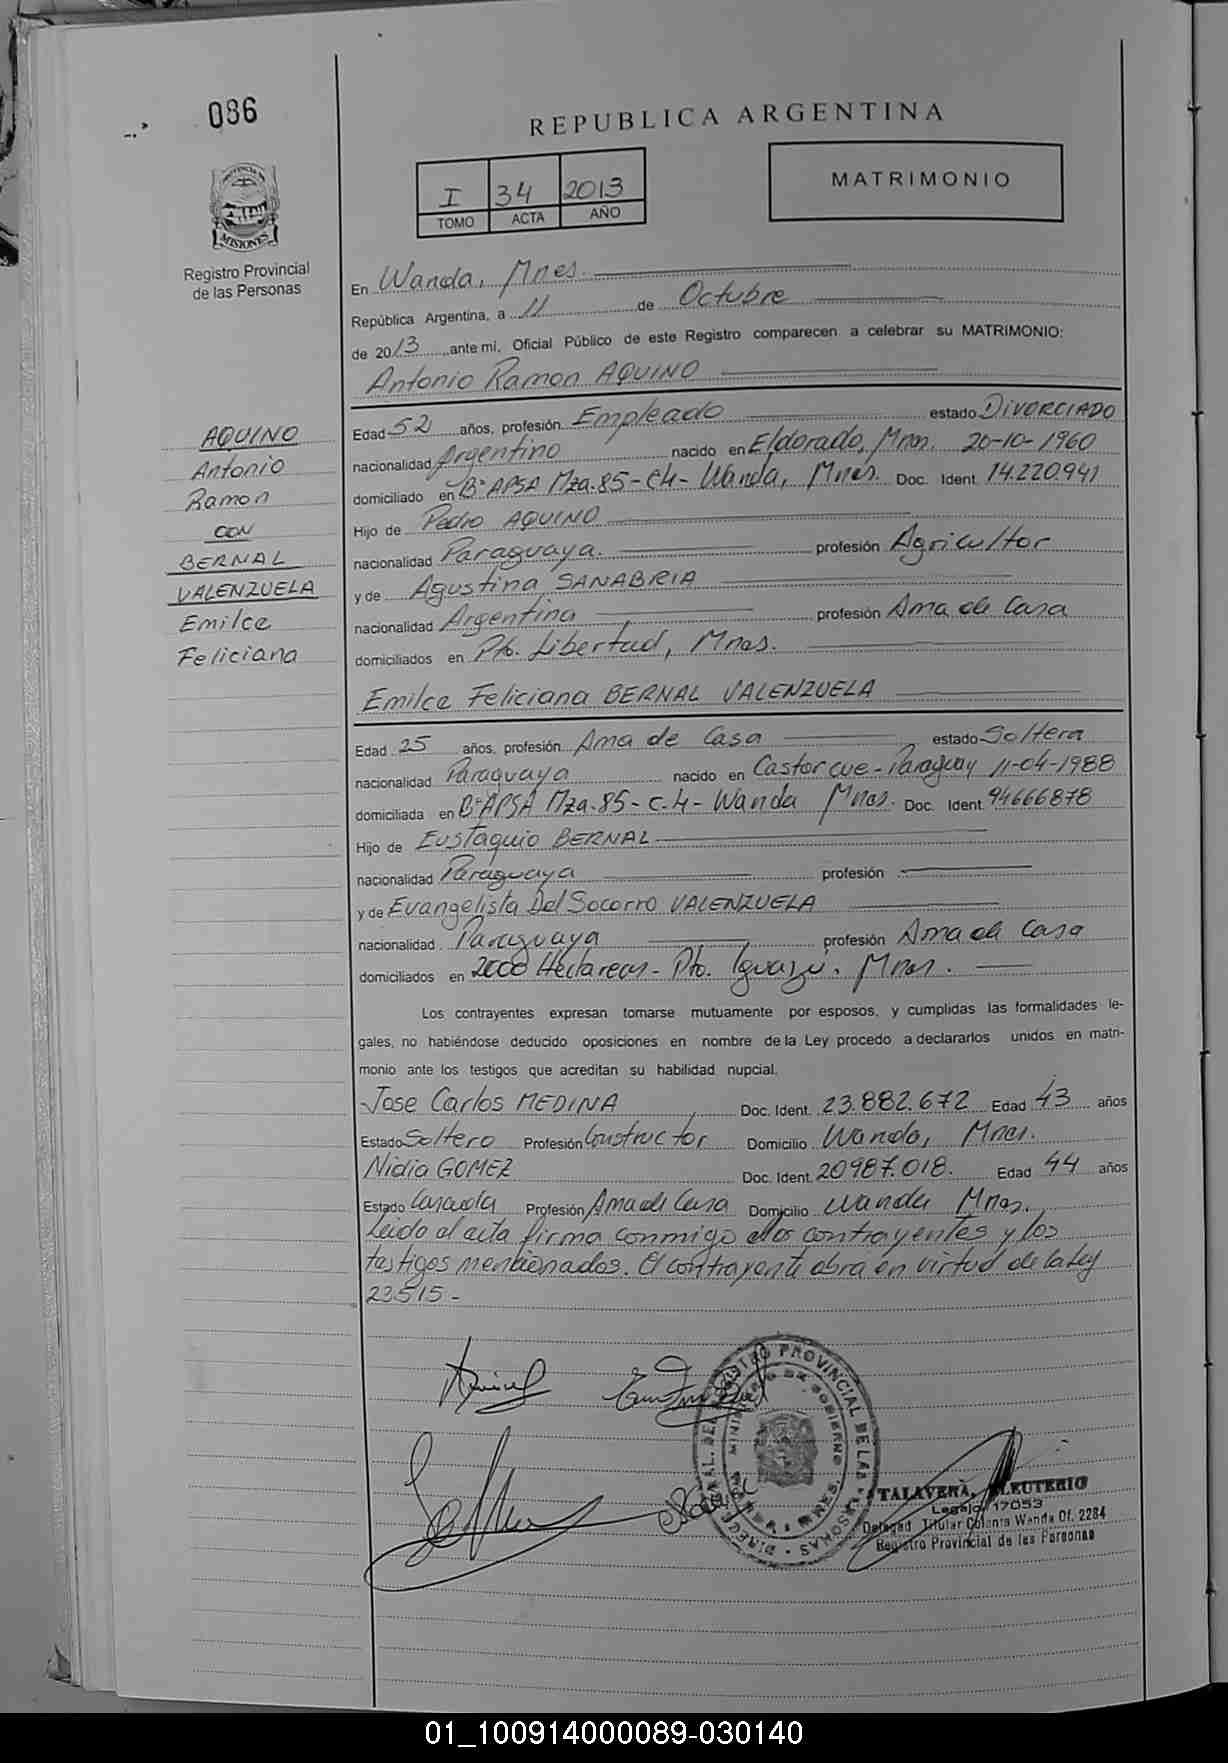 086
REPUBLICA ARGENTINA
I 34 2013
TOMO ACTA AÑO
MATRIMONIO
MISIONES
Registro Provincial
de las Personas
En Wanda, Mnes.
República Argentina, a 11 de Octubre
de 2013 ante mí, Oficial Público de este Registro comparecen a celebrar su MATRIMONIO:
Antonio Ramon AQUINO
AQUINO
Antonio
Ramon
CON
BERNAL
VALENZUELA
Emilce
Feliciana
Edad 52 años, profesión Empleado estado DIVORCIADO
nacionalidad Argentino nacido en Eldorado, Mnes. 20-10-1960
domiciliado en B° APSA Mza.85-C4- Wanda, Mnes. Doc. Ident. 14.220.941
Hijo de Pedro AQUINO
nacionalidad Paraguaya. profesión Agricultor
y de Agustina SANABRIA
nacionalidad Argentina profesión Ama de Casa
domiciliados en Pto. Libertad, Mnes.
Emilce Feliciana BERNAL VALENZUELA
Edad 25 años, profesión Ama de Casa estado Soltera
nacionalidad Paraguaya nacido en Castor cue-Paraguay 11-04-1988
domiciliada en B° APSA Mza.85-C.4- Wanda Mnes. Doc. Ident. 94666878
Hijo de Eustaquio BERNAL
nacionalidad Paraguaya profesión
y de Evangelista Del Socorro VALENZUELA
nacionalidad Paraguaya profesión Ama de Casa
domiciliados en 2000 Hectareas- Pto. Iguazú. Mnes.
Los contrayentes expresan tomarse mutuamente por esposos, y cumplidas las formalidades le-
gales, no habiéndose deducido oposiciones en nombre de la Ley procedo a declararlos unidos en matri-
monio ante los testigos que acreditan su habilidad nupcial.
Jose Carlos MEDINA Doc. Ident. 23.882.672 Edad 43 años
Estado Soltero Profesión Constructor Domicilio Wanda, Mnes.
Nidia GOMEZ Doc. Ident. 20987.018. Edad 44 años
Estado Casada Profesión Ama de Casa Domicilio Wanda Mnes.
Leido el acta firma conmigo los contrayentes y los
testigos mencionados. El contrayente obra en virtud de la Ley
23515-
TALAVERA, ELEUTERIO
Legajo 17053
Delegad. Titular Colonia Wanda Of. 2284
Registro Provincial de las Personas
01_100914000089-030140